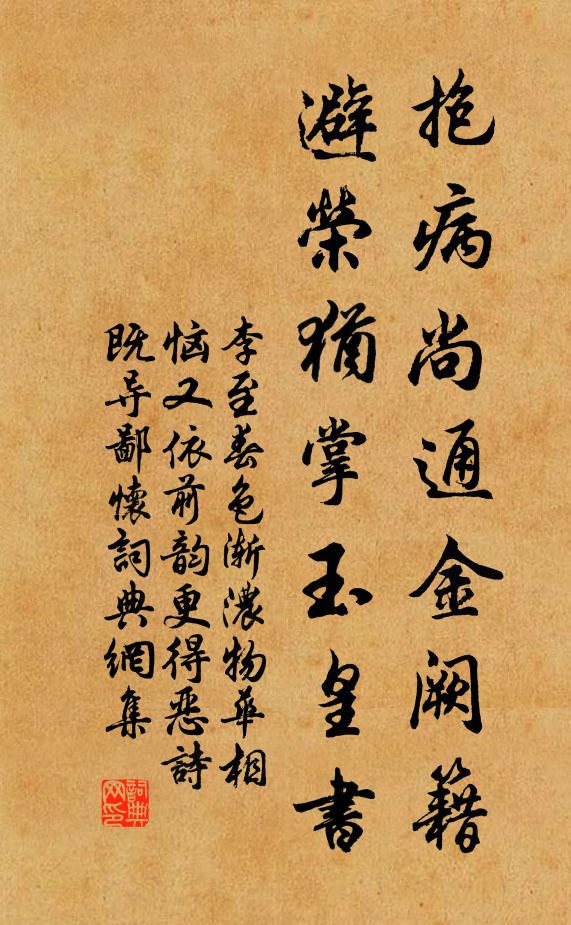 抱病尚通金阙籍
避榮猶掌玉皇書
李至春色渐濃物華相
恼又依前韵更得恶詩
既导鄙懷詞典網集
詞典
网印